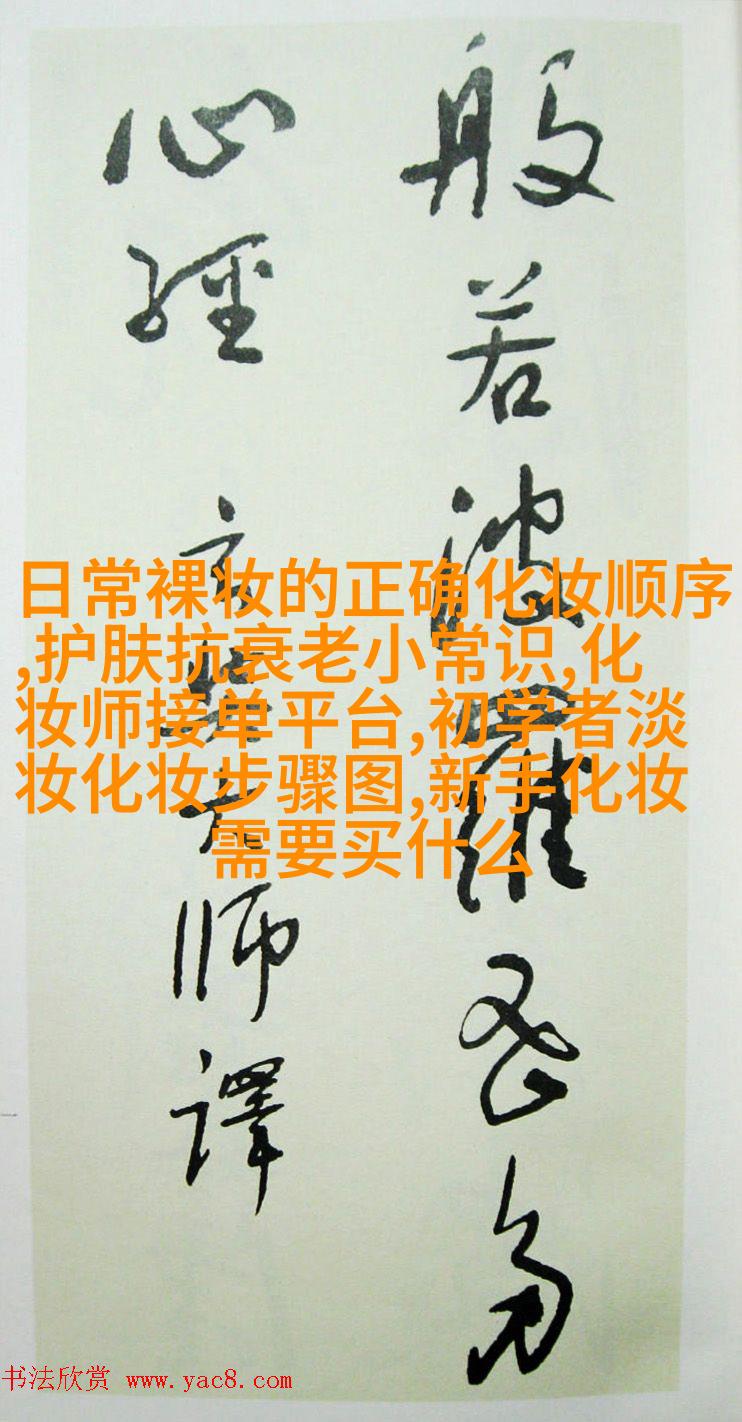 般若波羅蜜多
心經 玄奘大師譯
日常裸妆的正确化妆顺序
,护肤抗衰老小常识,化
妆师接单平台,初学者淡
妆化妆步骤图,新手化妆
需要买什么
书法欣赏 www.yac8.com